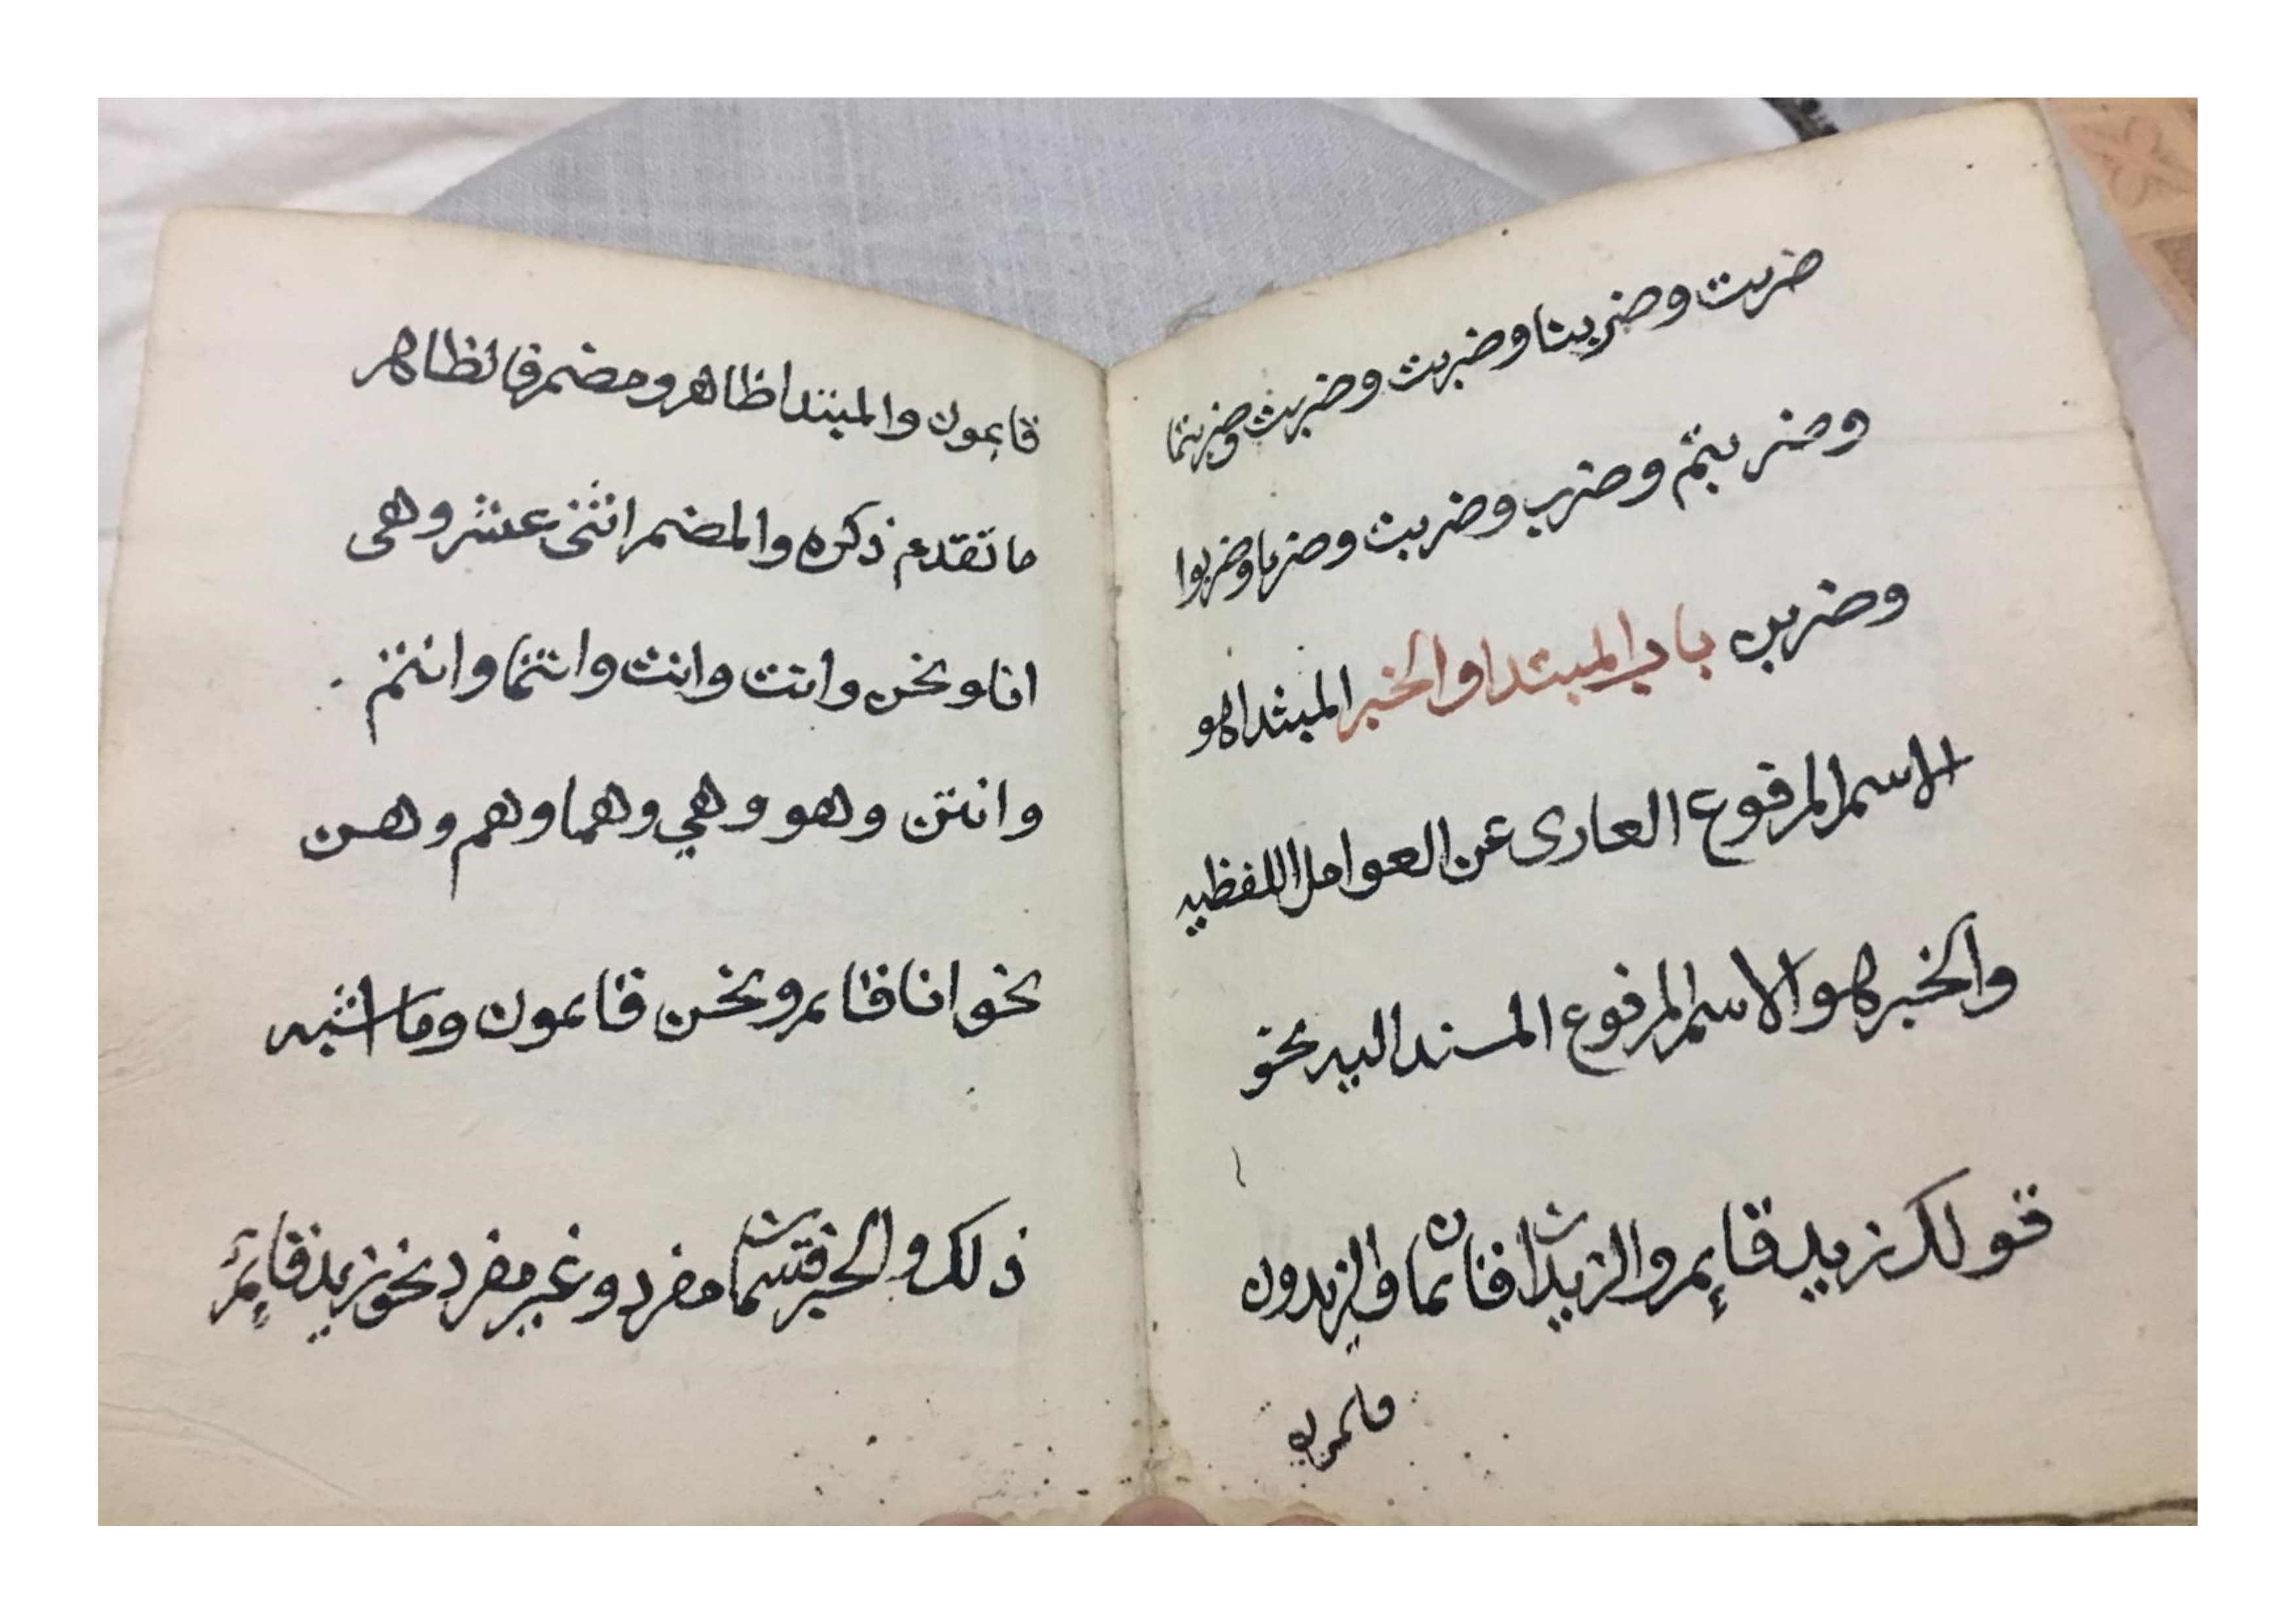 ضربت وضربنا وضربت وضربت وضربتما
وضربتم وضرب وضربت وضربا وضربوا
وضربن باب المبتدا والخبر المبتدا هو
الاسم المرفوع العارى عن العوامل اللفظيه
والخبر هو الاسم المرفوع المسند اليه نحو
قولك زيد قائم والزيدان قائمان والزيدون
قايمون والمبتدا ظاهر ومضمر فالظاهر
ما تقدم ذكره والمضمر اثنى عشر وهى
انا ونحن وانت وانت وانتما وانتم
وانتن وهو وهي وهما وهم وهن
نحو انا قايم ونحن قايمون وما اشبه
ذلك والخبر قسمان مفرد وغير مفرد نحو زيد قائم